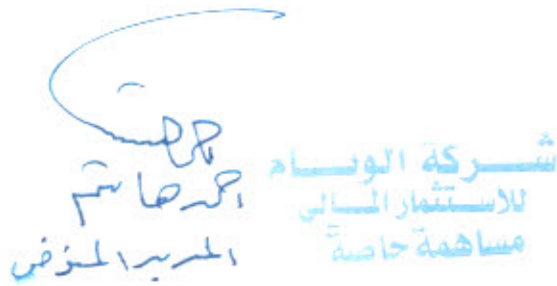 احمد هاشم
المدير المفوض
شركة الوسام
للاستثمار المالي
مساهمة خاصة